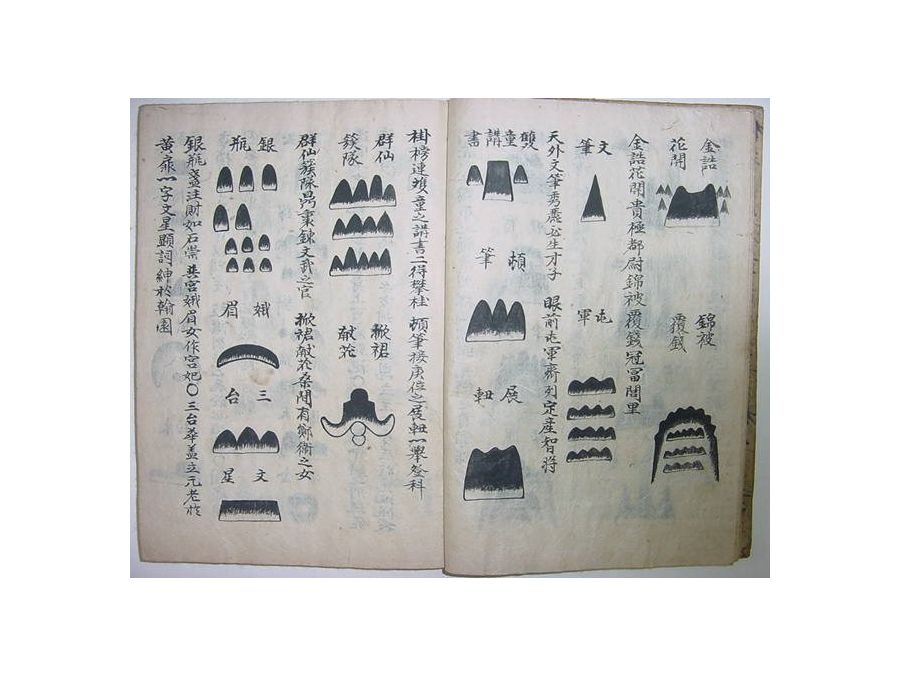 金誥
花開
錦被
覆錢
金誥花開貴極都尉錦被覆錢冠冨閭里
文
筆
屯
軍
天外文筆秀麗必生才子
眼前屯軍齊列定産智將
雙童講書
頓
筆
展
軓
掛榜連雙童之講書二得攀桂
頓筆接庚位之展軓一舉登科
群仙
簇隊
掀裙
献花
群仙簇隊鼎秉鍊文武之官
掀裙献花桑間有鄭衛之女
銀
瓶
娥
眉
三
台
文
星
銀瓶盞注財如石崇
宮娥眉女作宮妃○三台華盖立元老於
黄 一字文星顕詞紳於翰園